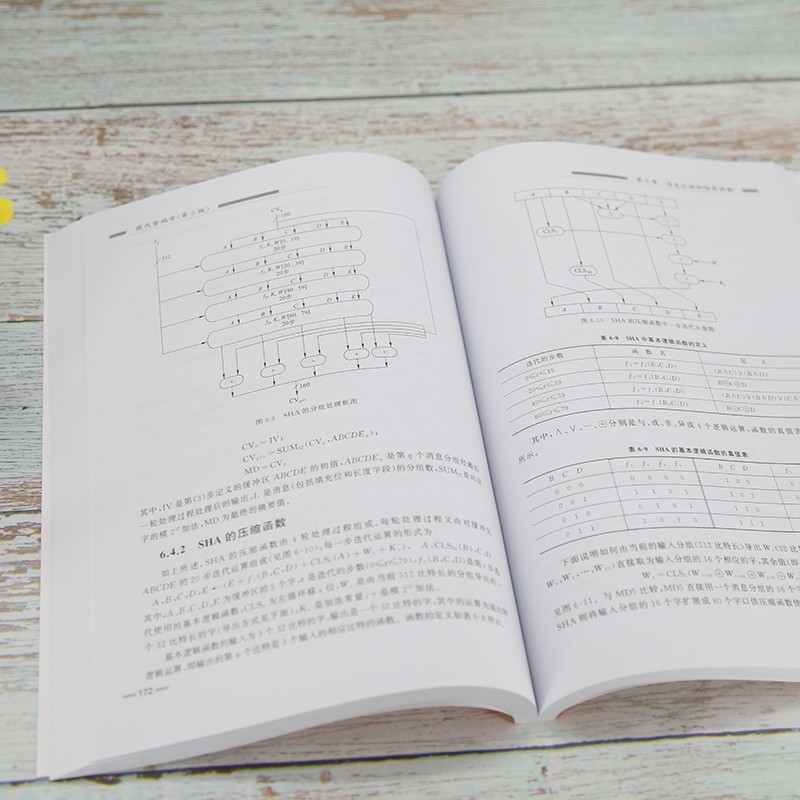 现代密码学(第5版)
CVq
160
Yq
512
A B C D E
f1,K,W[0..19]
20步
A B C D E
f2,K,W[20..39]
20步
A B C D E
f3,K,W[40..59]
20步
A B C D E
f4,K,W[60..79]
20步
+ + + + +
160
CVq+1
图 6-9 SHA 的分组处理框图
CV0=IV;
CVq+1=SUM32(CVq,ABCDEq);
MD=CVL
其中,IV 是第(3)步定义的缓冲区 ABCDE 的初值,ABCDEq 是第 q 个消息分组经最后
一轮处理过程处理后的输出,L 是消息(包括填充位和长度字段)的分组数,SUM32是对应
字的模 2³² 加法,MD 为最终的摘要值。
6.4.2 SHA 的压缩函数
如上所述,SHA 的压缩函数由 4 轮处理过程组成,每轮处理过程又由对缓冲区
ABCDE 的 20 步迭代运算组成(见图 6-10),每一步迭代运算的形式为
A,B,C,D,E←(E+ft(B,C,D)+CLS5(A)+Wt+Kt), A,CLS30(B),C,D
其中,A,B,C,D,E 为缓冲区的 5 个字,t 是迭代的步数(0≤t≤79),ft(B,C,D)是第 t 步迭
代使用的基本逻辑函数,CLSs 为左循环移 s 位,Wt 是由当前 512 比特长的分组导出的一
个 32 比特长的字(导出方式见下面),Kt 是加法常量,+是模 2³² 加法。
基本逻辑函数的输入为 3 个 32 比特的字,输出是一个 32 比特的字,其中的运算为逐比特
逻辑运算,即输出的第 n 个比特是 3 个输入的相应比特的函数。函数的定义如表 6-8 所示。
172
A B C D E
CLS5
CLS30
A B C D E
图 6-10 SHA 的压缩函数中一步迭代示意图
表 6-8 SHA 中基本逻辑函数的定义
迭代的步数 函 数 名 定 义
0≤t≤19 f1=ft(B,C,D)
20≤t≤39 f2=ft(B,C,D) B⊕C⊕D
40≤t≤59 f3=ft(B,C,D)
60≤t≤79 f4=ft(B,C,D) B⊕C⊕D
其中,∧、∨、−、⊕分别是与、或、非、异或 4 个逻辑运算,函数的真值表
所示。
表 6-9 SHA 的基本逻辑函数的真值表
B C D f1 f2 f3 f4 B C D f1 f2
0 0 0 0 0 0 0 1 0 0 0 1
0 0 1 1 1 0 1 1 0 1 0 0
0 1 0 0 1 0 1 1 1 0 1 0
0 1 1 1 0 1 0 1 1 1 1 1
下面说明如何由当前的输入分组(512 比特长)导出 Wt(32 比
W0,W1,…,W15)直接取为输入分组的 16 个相应的字,其余值(即
Wt=CLS1(Wt−16⊕Wt−14⊕Wt−8⊕W
见图 6-11。与 MD5 比较,MD5 直接用一个消息分组的 16 个字
SHA 则将输入分组的 16 个字扩展成 80 个字以供压缩函数使